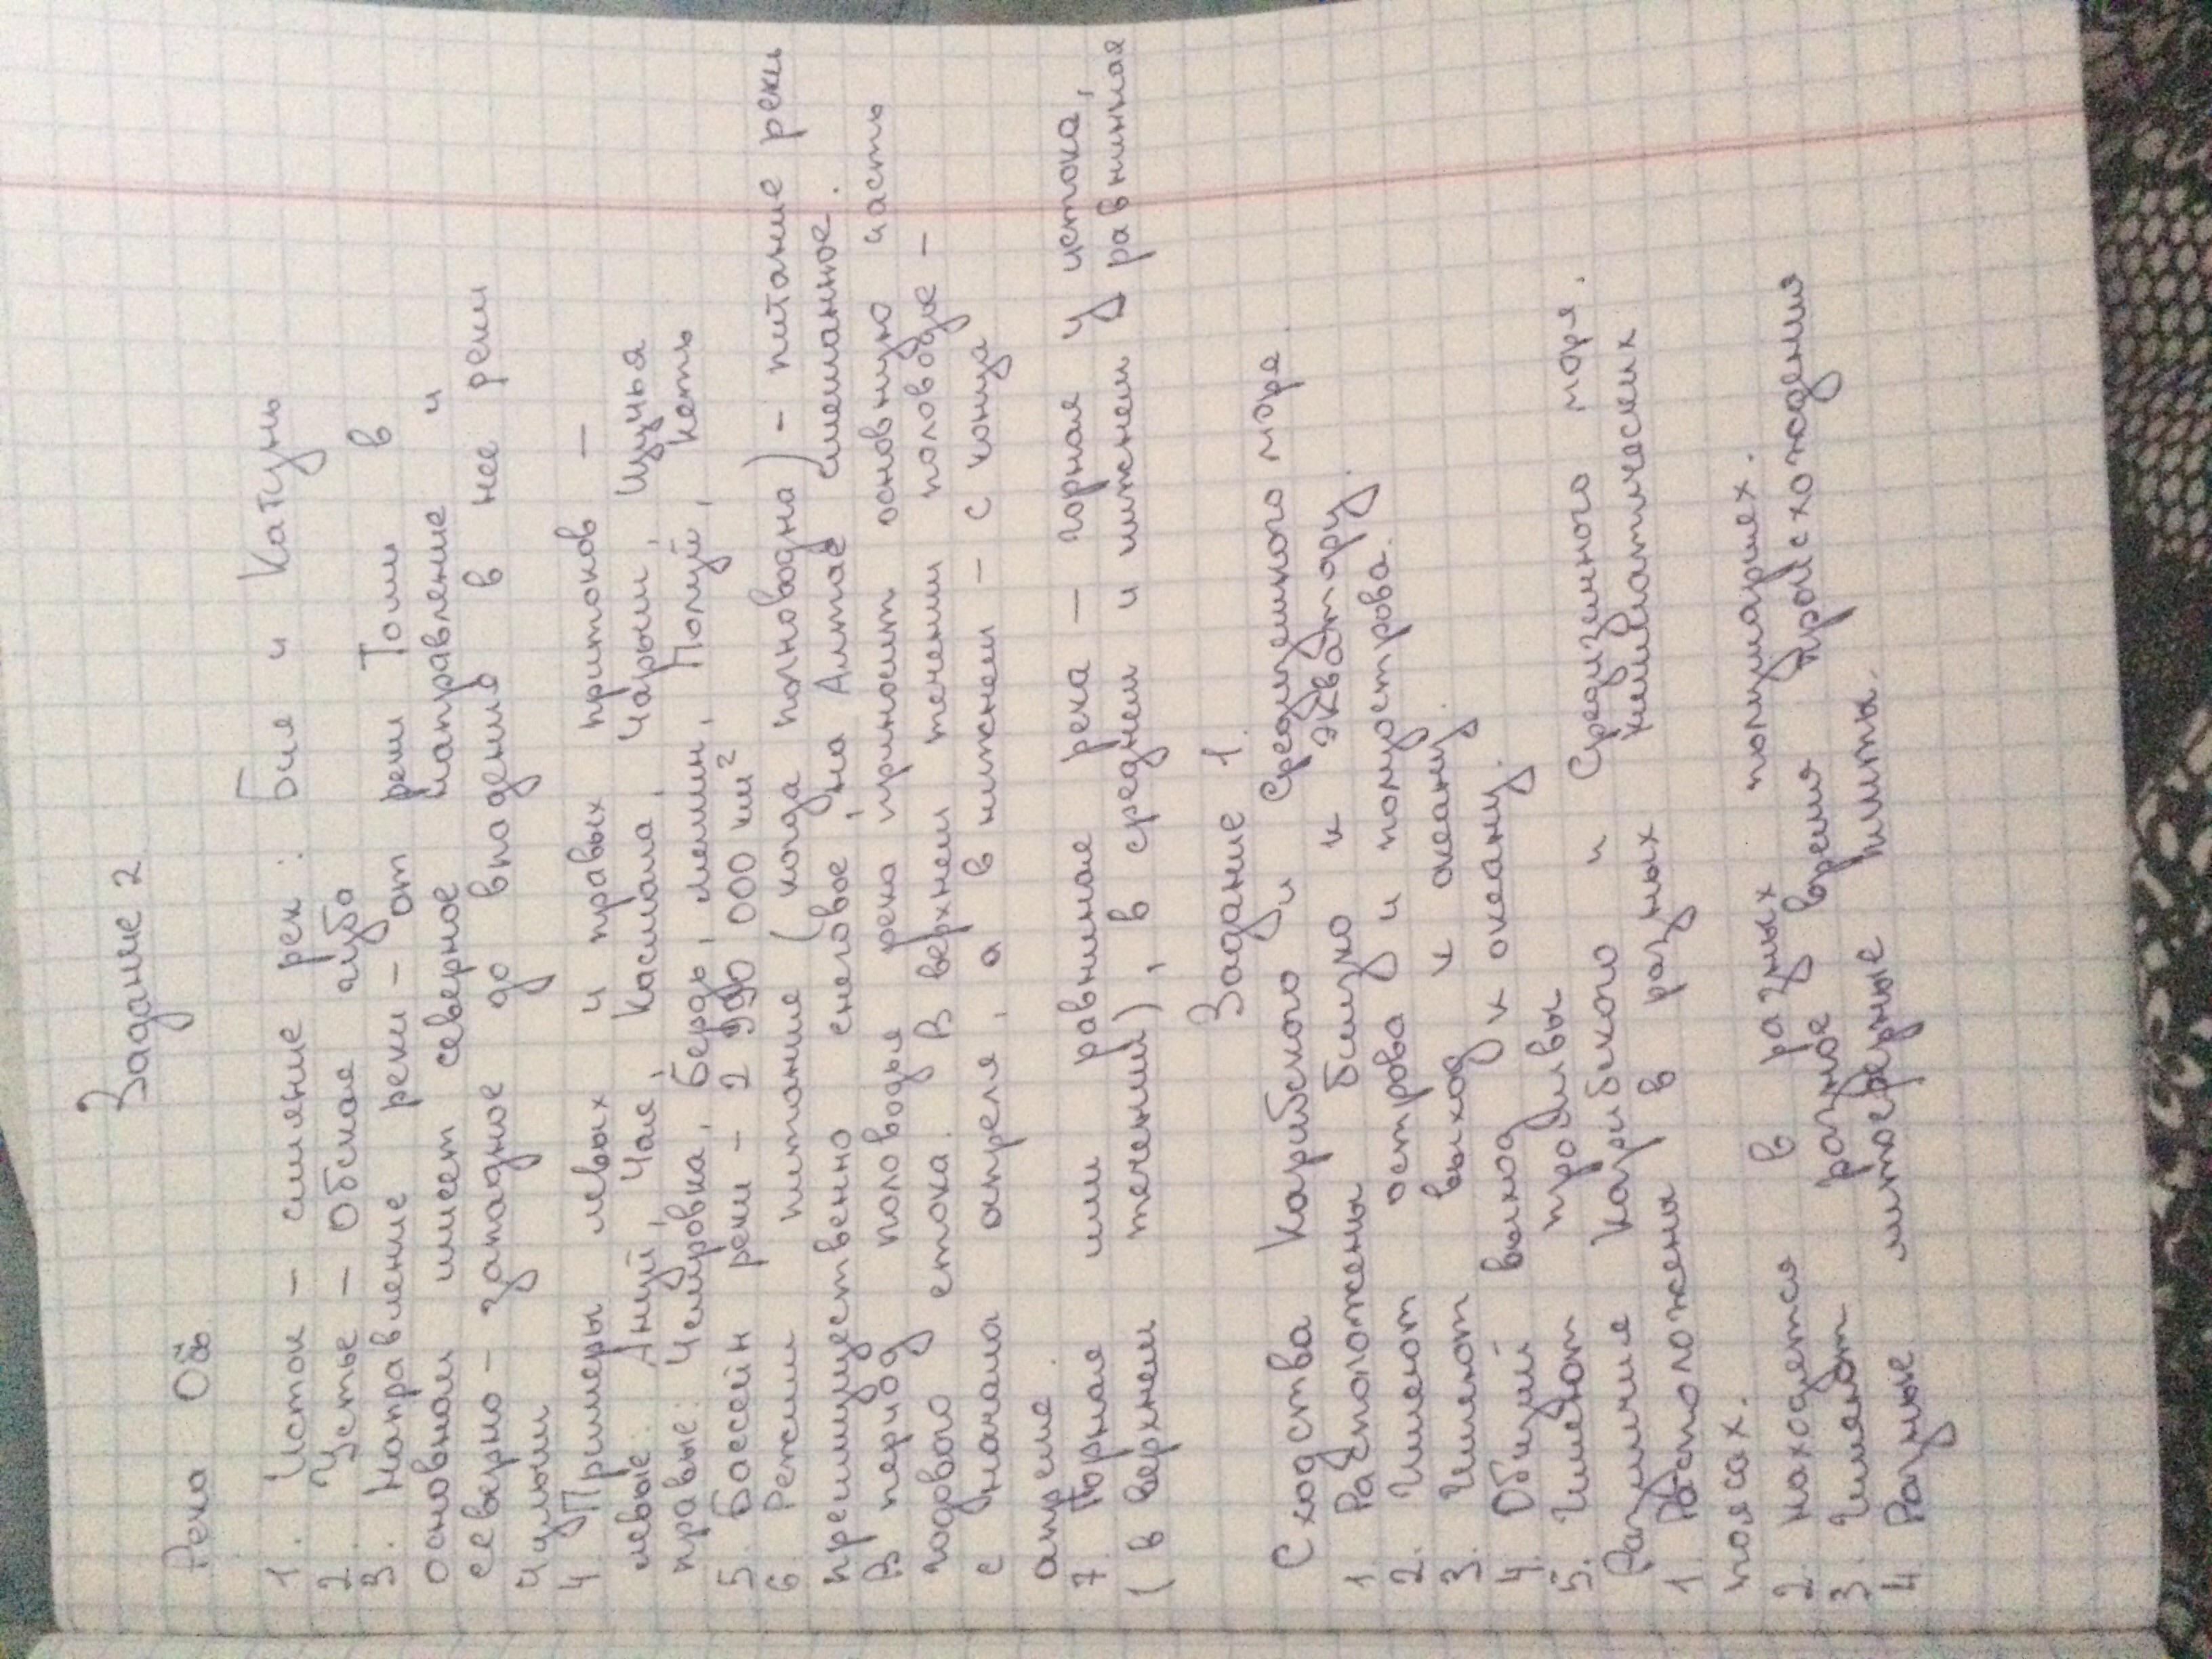 Задание 2
Река Обь
1. Исток – слияние рек: Бия и Катунь
2. Устье – Обская губа
3. Направление реки – от реки Томи в
основном имеет северное направление и
северно-западное до впадения в нее реки
Чулым
4. Примеры левых и правых притоков –
левые: Ануй, Чая, Касмала, Чарыш, Щучья
правые: Чемровка, Бердь, Полуй, Кеть
5. Бассейн реки – 2 990 000 км²
6. Режим питание (когда полноводна) – питание реки
преимущественно снеговое, на Алтае смешанное.
В период половодья река приносит основную часть
годового стока. В верхнем течении половодье –
с начала апреля, а в нижнем – с конца
апреля.
7. Горная или равниная река – горная у истока,
(в верхнем течении), в среднем и нижнем равнинная
Задание 1.
Сходства Карибского и Средиземного моря.
1. Расположены близко к экватору.
2. Имеют острова и полуострова.
3. Имеют выход к океану.
4. Общий выход к океану.
5. Имеют проливы
Различие Карибского и Средизенного моря.
1. Расположены в разных климатических
поясах.
2. Находятся в разных полушариях.
3. Имеют разное время происхождения
4. Разные литосферные плиты.